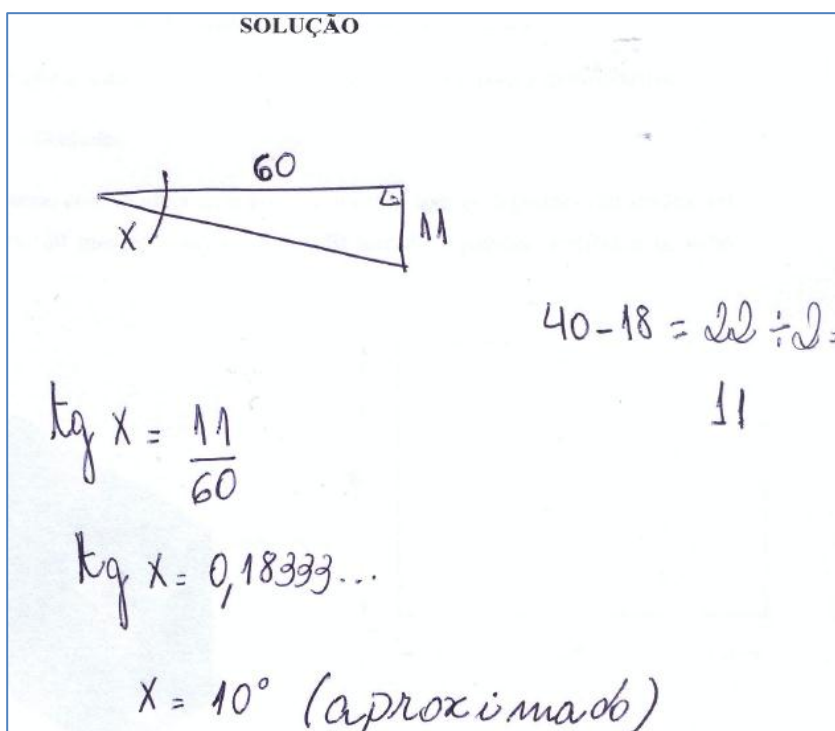 SOLUÇÃO
60
X
11
40-18 = 22 ÷2=
11
tg x = 11/60
tg x = 0,18333...
x = 10° (aproximado)